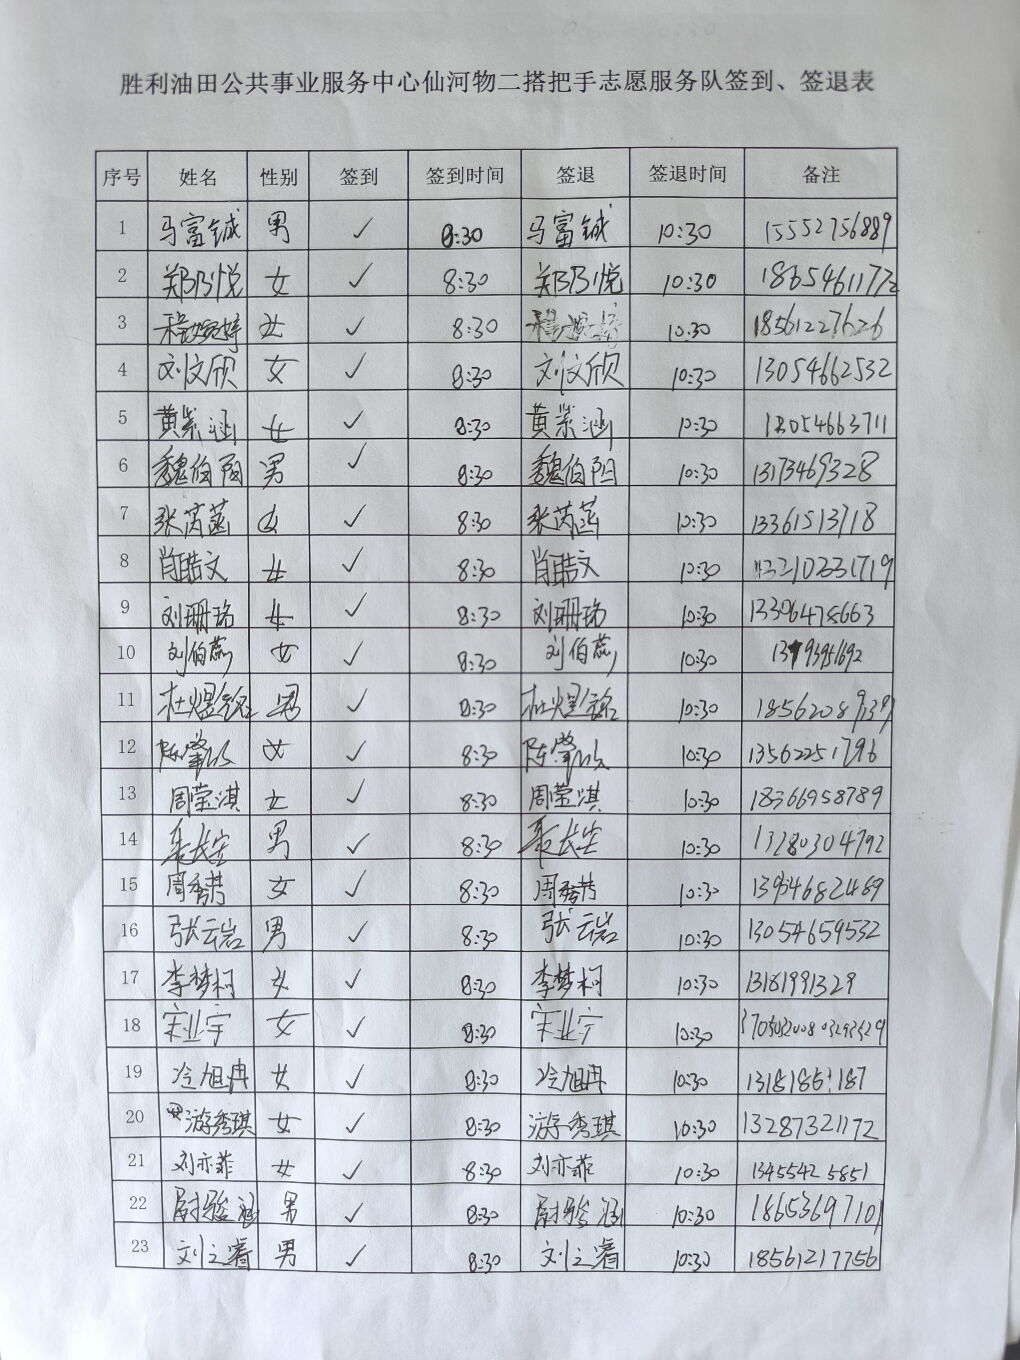 胜利油田公共事业服务中心仙河物二搭把手志愿服务队签到、签退表
序号 姓名 性别 签到 签到时间 签退 签退时间 备注
1 马富铖 男 ✓ 8:30 马富铖 10:30 15552756889
2 郑乃悦 女 ✓ 8:30 郑乃悦 10:30 18654611772
3 女 ✓ 8:30 10:30 18561227626
4 刘文欣 女 ✓ 8:30 刘文欣 10:30 13054662532
5 黄紫涵 女 ✓ 8:30 黄紫涵 10:30 18054663711
6 魏伯阳 男 ✓ 8:30 魏伯阳 10:30 13173469328
7 张芮菡 女 ✓ 8:30 张芮菡 10:30 13361513718
8 肖皓文 女 ✓ 8:30 肖皓文 10:30
9 刘珊珞 女 ✓ 8:30 刘珊珞 10:30 13306478663
10 刘伯蕊 女 ✓ 8:30 刘伯蕊 10:30
11 杜煜铭 男 ✓ 8:30 杜煜铭 10:30
12 陈肇以 女 ✓ 8:30 陈肇以 10:30 13562251796
13 周莹淇 女 ✓ 8:30 周莹淇 10:30 18366958789
14 男 ✓ 8:30 10:30 13280304792
15 周香梦 女 ✓ 8:30 周香梦 10:30
16 张云岩 男 ✓ 8:30 张云岩 10:30 13054659532
17 李梦柯 女 ✓ 8:30 李梦柯 10:30 13181991329
18 宋业宁 女 ✓ 8:30 宋业宁 10:30
19 冷旭冉 女 ✓ 8:30 冷旭冉 10:30 13181861187
20 游秀琪 女 ✓ 8:30 游秀琪 10:30 13287321172
21 刘亦菲 女 ✓ 8:30 刘亦菲 10:30 13455425851
22 尉骏涵 男 ✓ 8:30 尉骏涵 10:30 18653697101
23 刘立睿 男 ✓ 8:30 刘立睿 10:30 18561217756